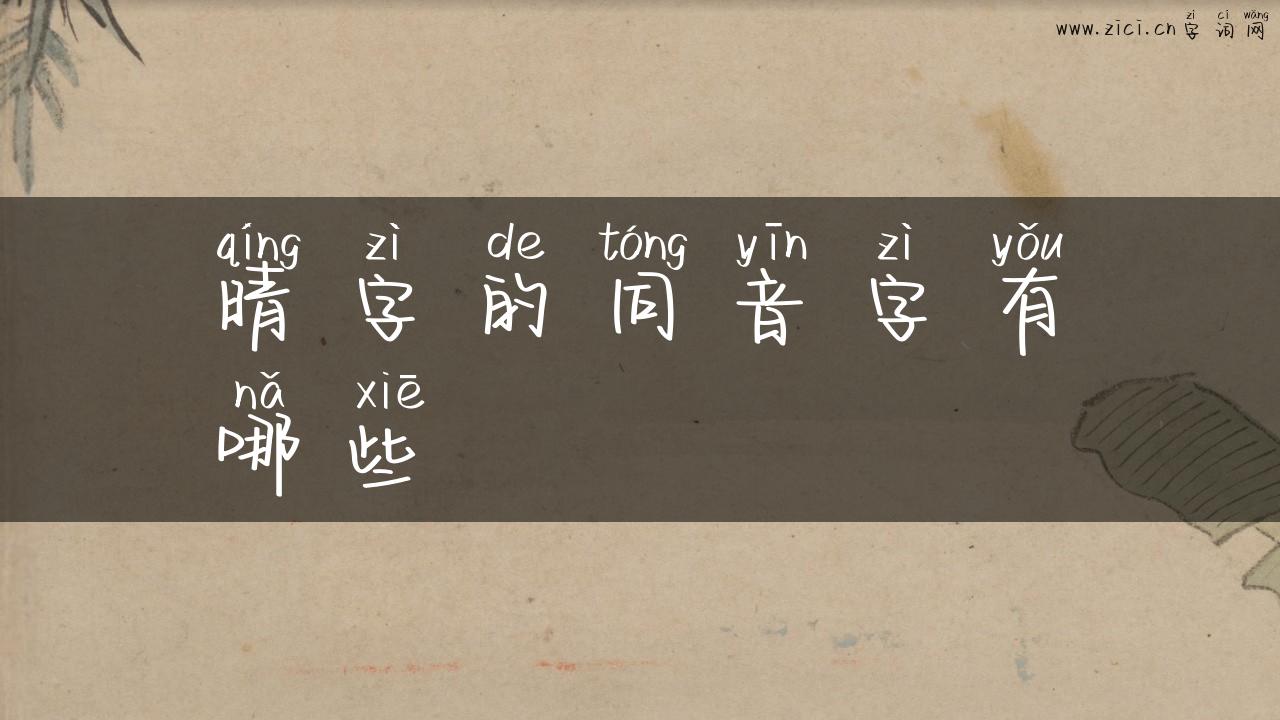 zì cí wǎng
www.zici.cn字词网
qíng zì de tóng yīn zì yǒu
晴字的同音字有
nǎ xiē
哪些